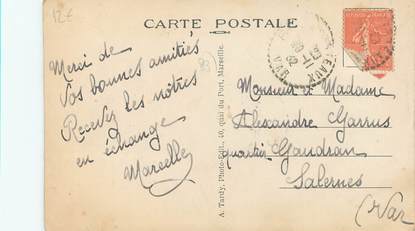 12€
CARTE POSTALE
Merci de
Vos bonnes amitiés
Recevez les notres
en échange
Marcelle
A. Tardy, Photo-Édit., 40, quai du Port, Marseille.
Monsieur et Madame
Alexandre Garrus
quartier Gaudran
Salernes
(Var